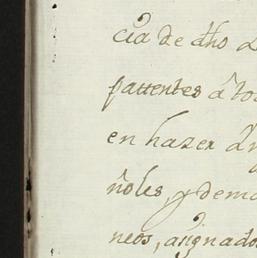 cia de dho
pattentes â to
en hazer
ñoles, y dem
neos, asignados